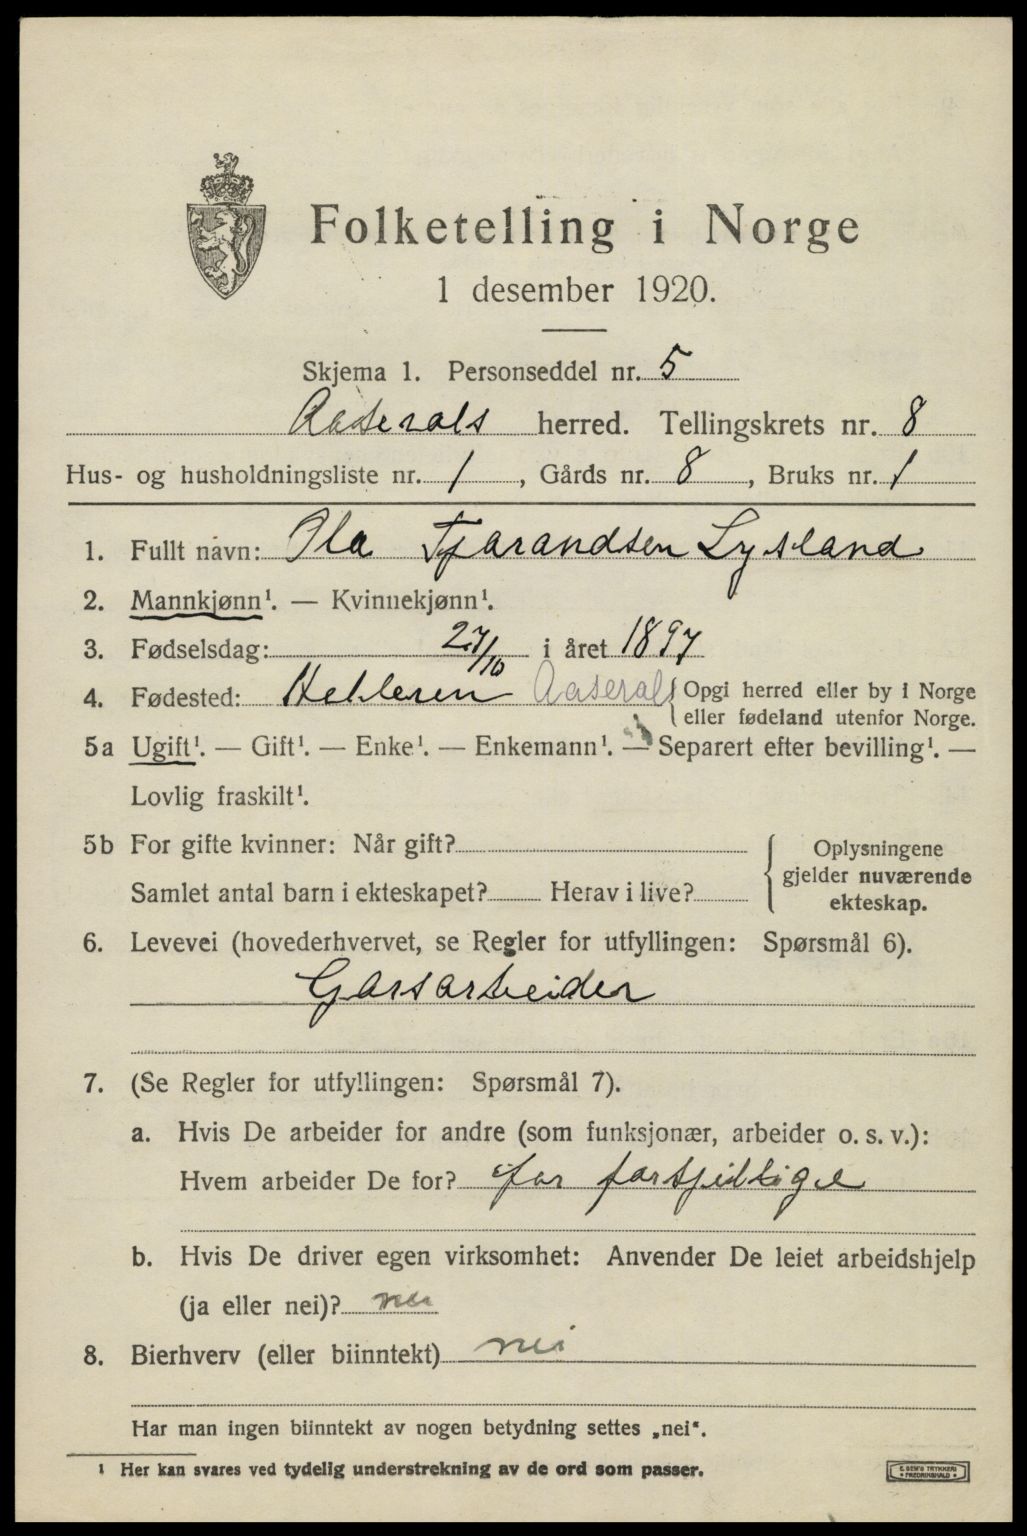 Folketelling i Norge
1 desember 1920.
Skjema 1. Personseddel nr. 5
Aaserals herred. Tellingskrets nr. 8
Hus- og husholdningsliste nr. 1, Gårds nr. 8, Bruks nr. 1
1. Fullt navn: Ola Tjarandsen Lysland
2. Mannkjønn¹. — Kvinnekjønn¹.
3. Fødselsdag: 27/10 i året 1897
4. Fødested: Helleren Aaseral { Opgi herred eller by i Norge
eller fødeland utenfor Norge.
5a Ugift¹. — Gift¹. — Enke¹. — Enkemann¹. — Separert efter bevilling¹. —
Lovlig fraskilt¹.
5b For gifte kvinner: Når gift?
Samlet antal barn i ekteskapet? Herav i live?
Oplysningene
gjelder nuværende
ekteskap.
6. Levevei (hovederhvervet, se Regler for utfyllingen: Spørsmål 6).
Garsarbeider
7. (Se Regler for utfyllingen: Spørsmål 7).
a. Hvis De arbeider for andre (som funksjonær, arbeider o. s. v.):
Hvem arbeider De for? for forsjellige
b. Hvis De driver egen virksomhet: Anvender De leiet arbeidshjelp
(ja eller nei)? nei
8. Bierhverv (eller biinntekt) nei
Har man ingen biinntekt av nogen betydning settes „nei“.
¹ Her kan svares ved tydelig understrekning av de ord som passer.
E. SEM'S TRYKKERI
• FREDRIKSHALD •